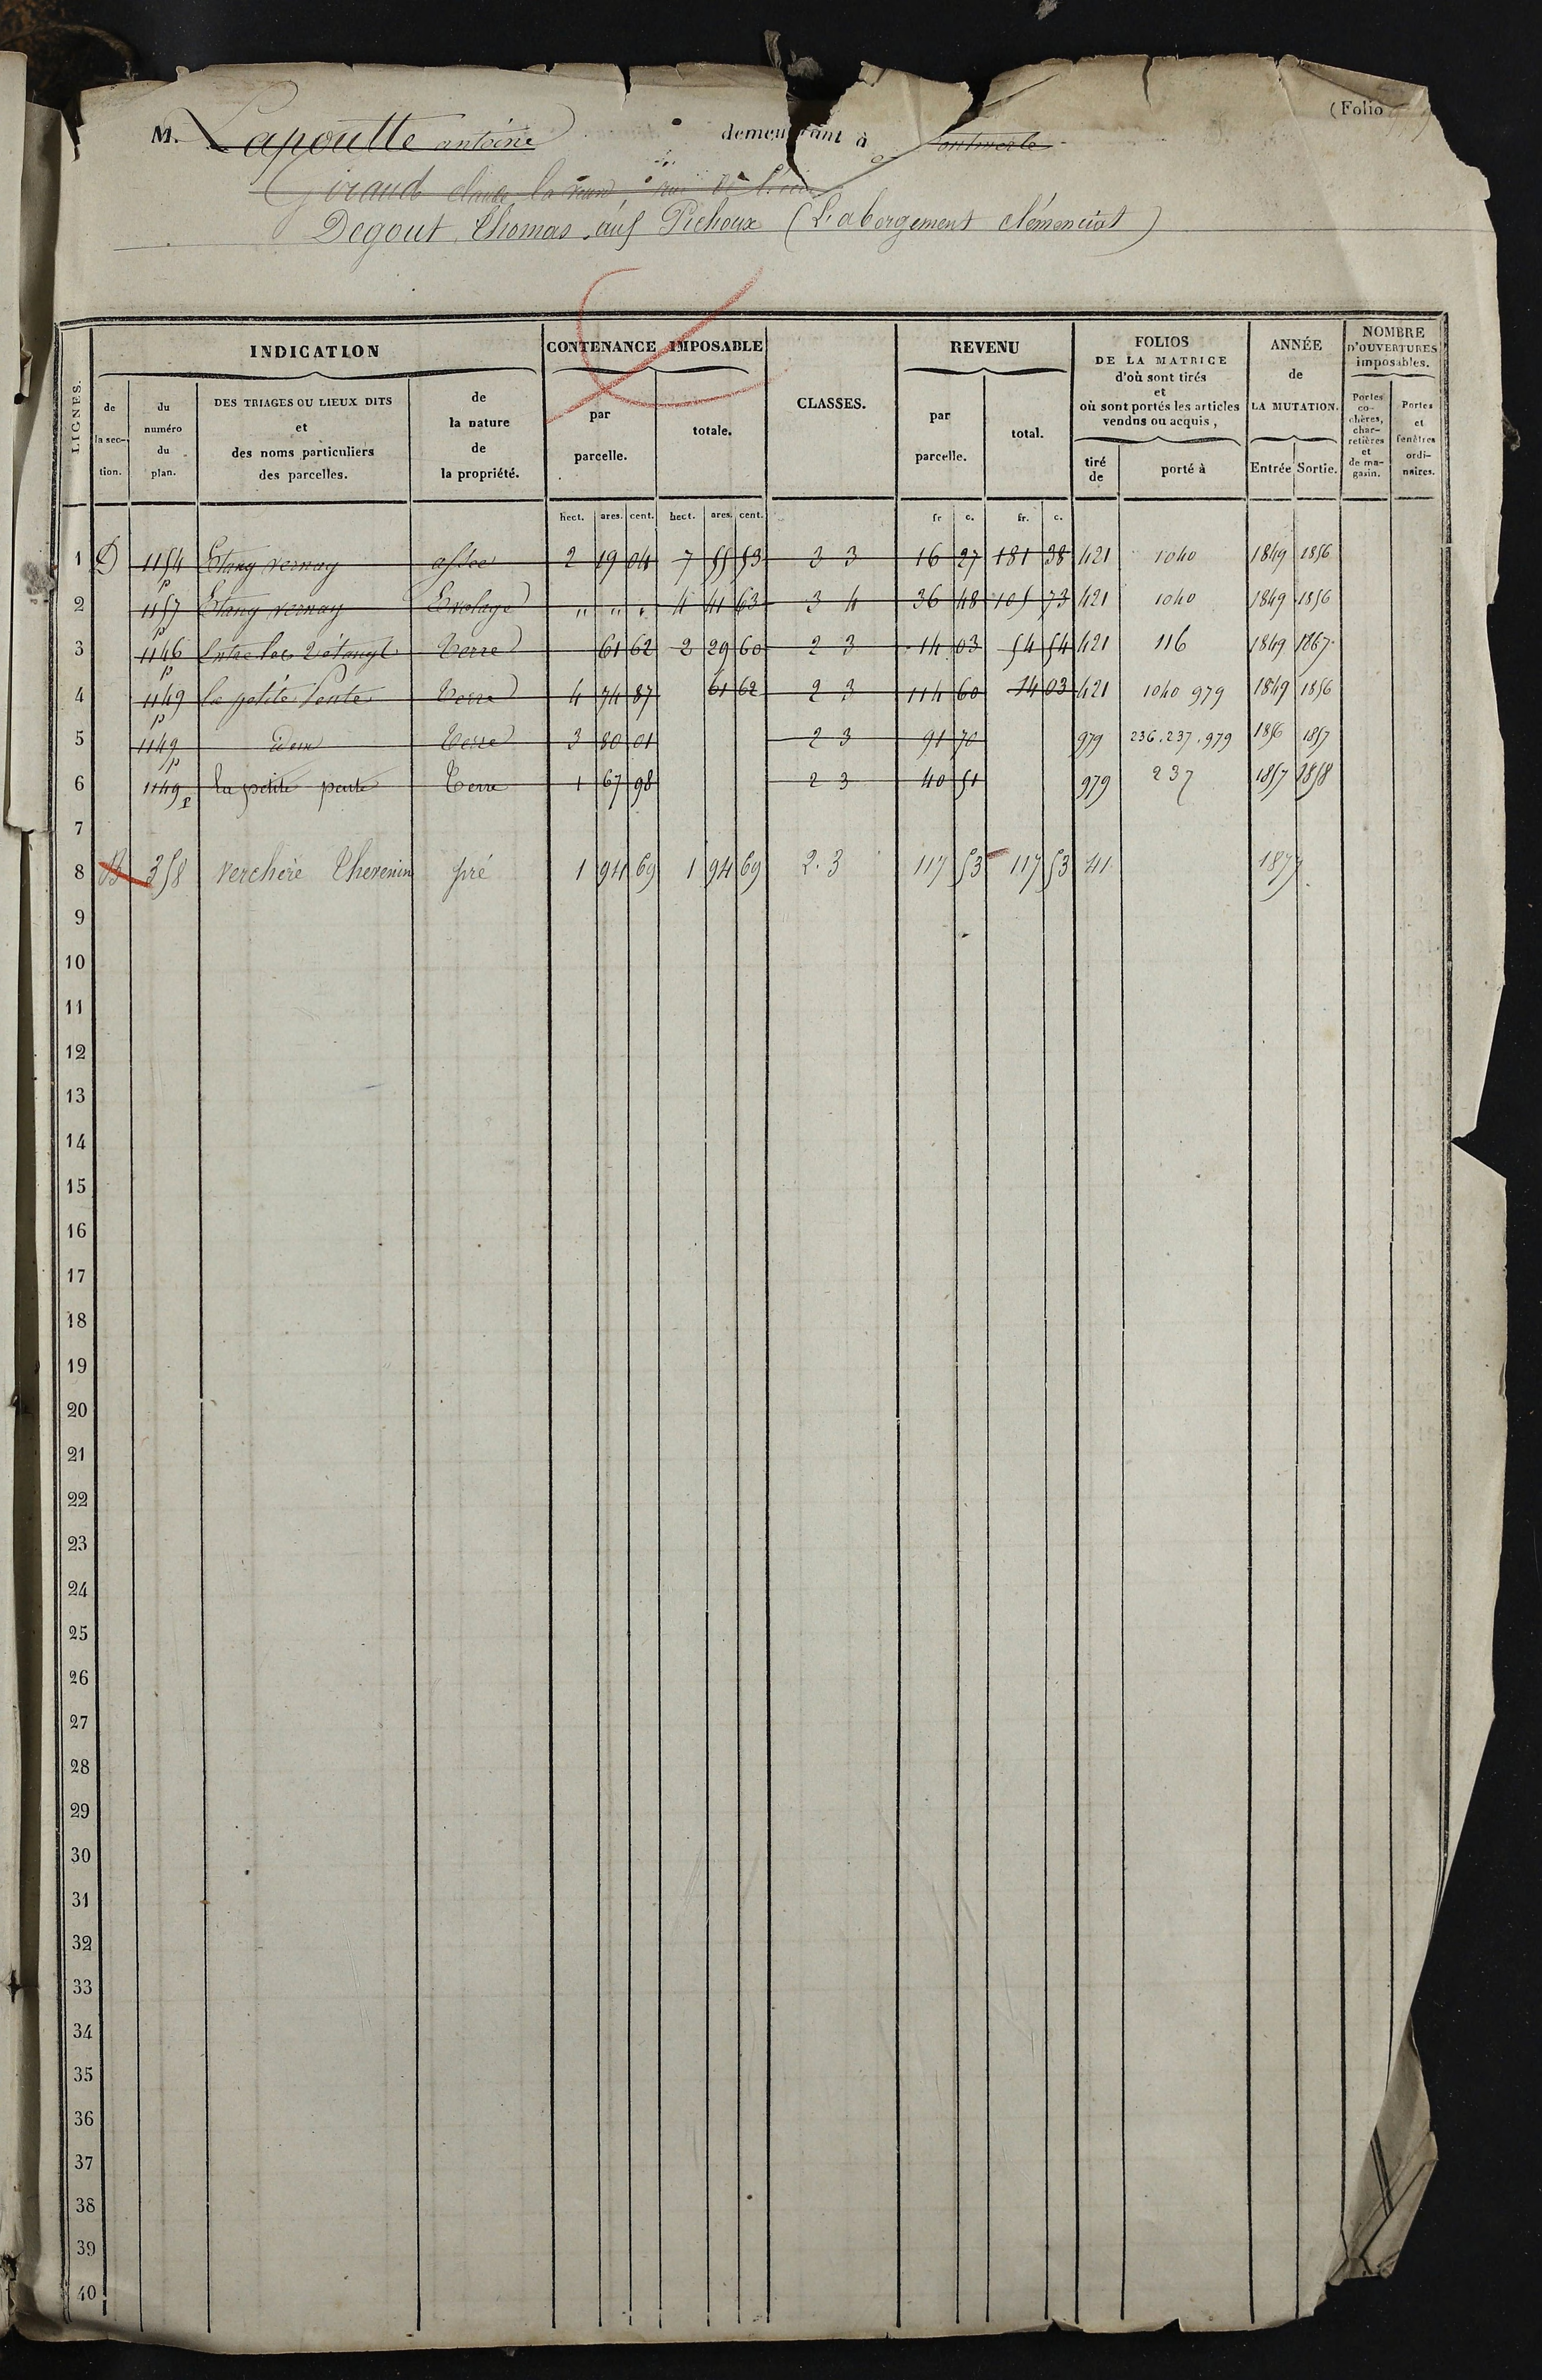 (Folio
M. Lapoutte antoine demeurant à
Giraud claude la veuve
Degout Thomas aux Pichoux (L'abergement clémenciat)
LIGNES. INDICATION CONTENANCE IMPOSABLE CLASSES. REVENU FOLIOS DE LA MATRICE d'où sont tirés et où sont portés les articles vendus ou acquis, ANNÉE de LA MUTATION. NOMBRE D'OUVERTURES imposables.
de la section. du numéro du plan. DES TRIAGES OU LIEUX DITS et des noms particuliers des parcelles. de la nature de la propriété. par parcelle. totale. par parcelle. total. tiré de porté à Entrée Sortie. Portes cochères, charretières et de magasin. Portes et fenêtres ordinaires.
hect. ares. cent. hect. ares. cent. fr c. fr. c.
1 D 1154 p Etang vernay assec 2 19 04 7 55 53 3 3 16 27 181 38 421 1040 1849 1856
2 1157 p Etang vernay Evolage " " " 4 41 63 3 4 36 48 105 73 421 1040 1849 1856
3 1146 p Entre les 2 étangs Terre 61 62 2 29 60 2 3 14 03 54 54 421 116 1849 1867
4 1149 p la petite Pente Terre 4 74 87 61 62 2 3 114 60 14 03 421 1040 979 1849 1856
5 1149 p Idem Terre 3 80 01 2 3 91 70 979 236.237.979 1856 1857
6 1149 p la petite pente Terre 1 67 98 2 3 40 51 979 237 1857 1858
7
8 B 358 verchère Thevenin pré 1 94 69 1 94 69 2.3 117 53 117 53 41 1877
9
10
11
12
13
14
15
16
17
18
19
20
21
22
23
24
25
26
27
28
29
30
31
32
33
34
35
36
37
38
39
40